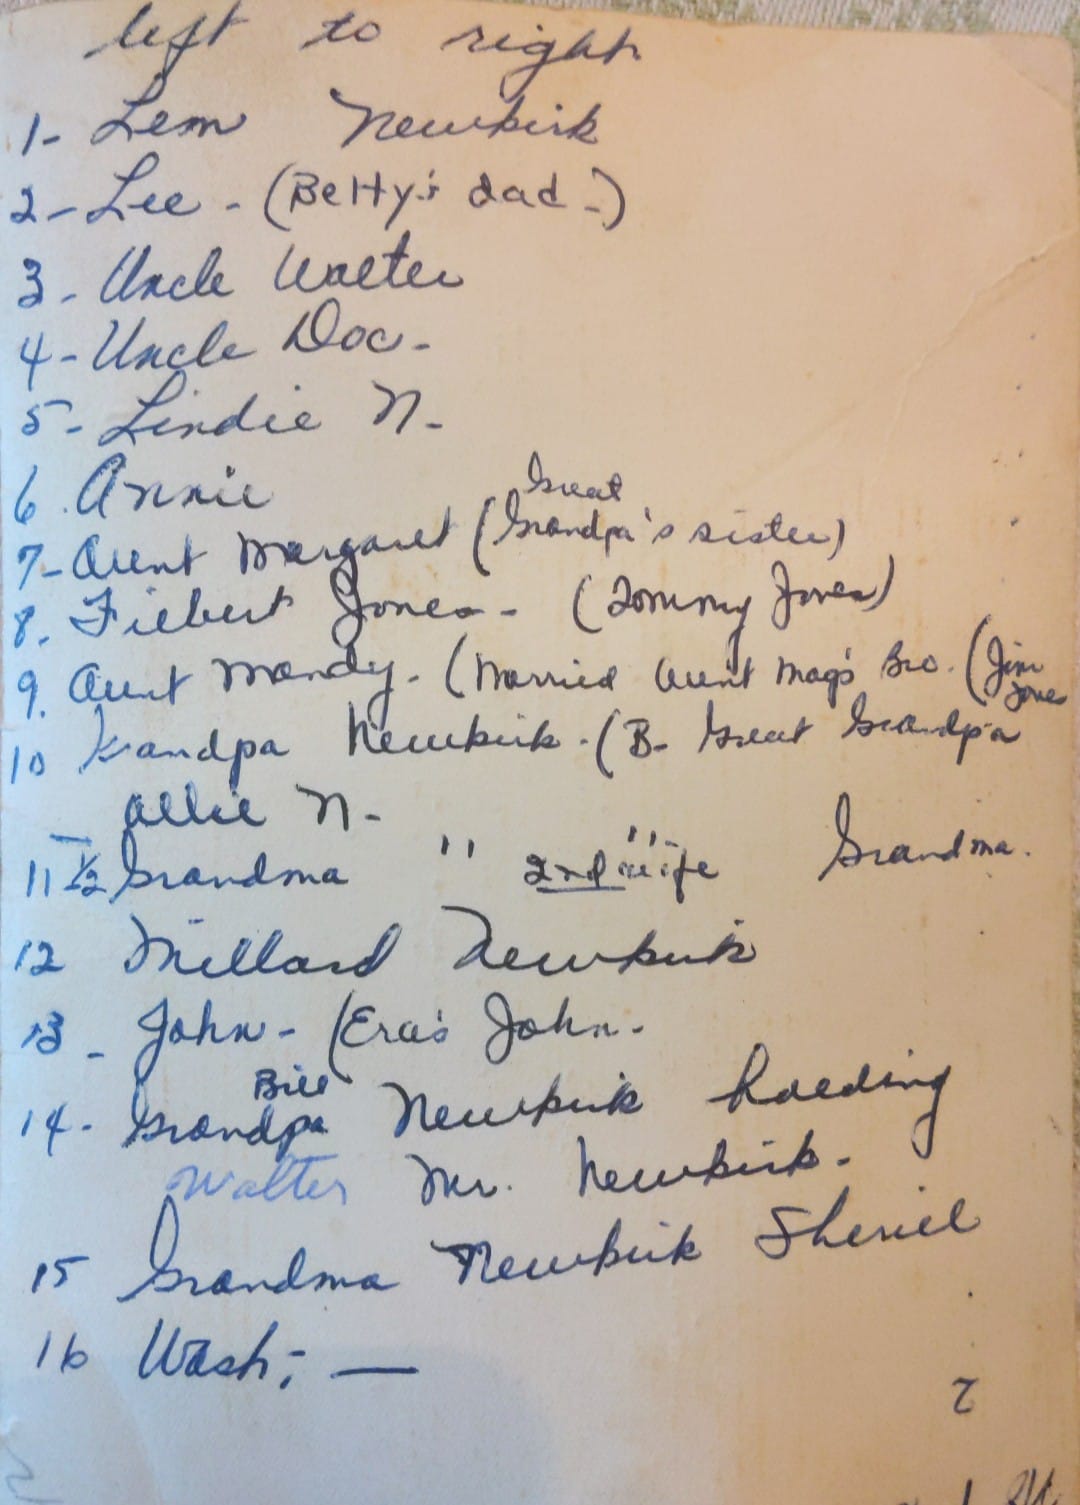 left to right
1- Lem Newkirk
2- Lee - (Betty's dad -)
3- Uncle Walter
4- Uncle Doc -
5- Lindie N -
6. Annie
Great
7- Aunt Margaret (Grandpa's sister)
8. Filbert Jones - (Tommy Jones)
9. Aunt Mandy. (Married Aunt Mag's Bro. (Jim Jones
10 Grandpa Newkirk - (B- Great Grandpa
Allie N -
11 1/2 Grandma " 2nd wife " Grandma.
12 Millard Newkirk
13 - John - (Era's John -
Bill
14 - Grandpa Newkirk holding
Walter Mr. Newkirk -
15 Grandma Newkirk
16 Wash; —